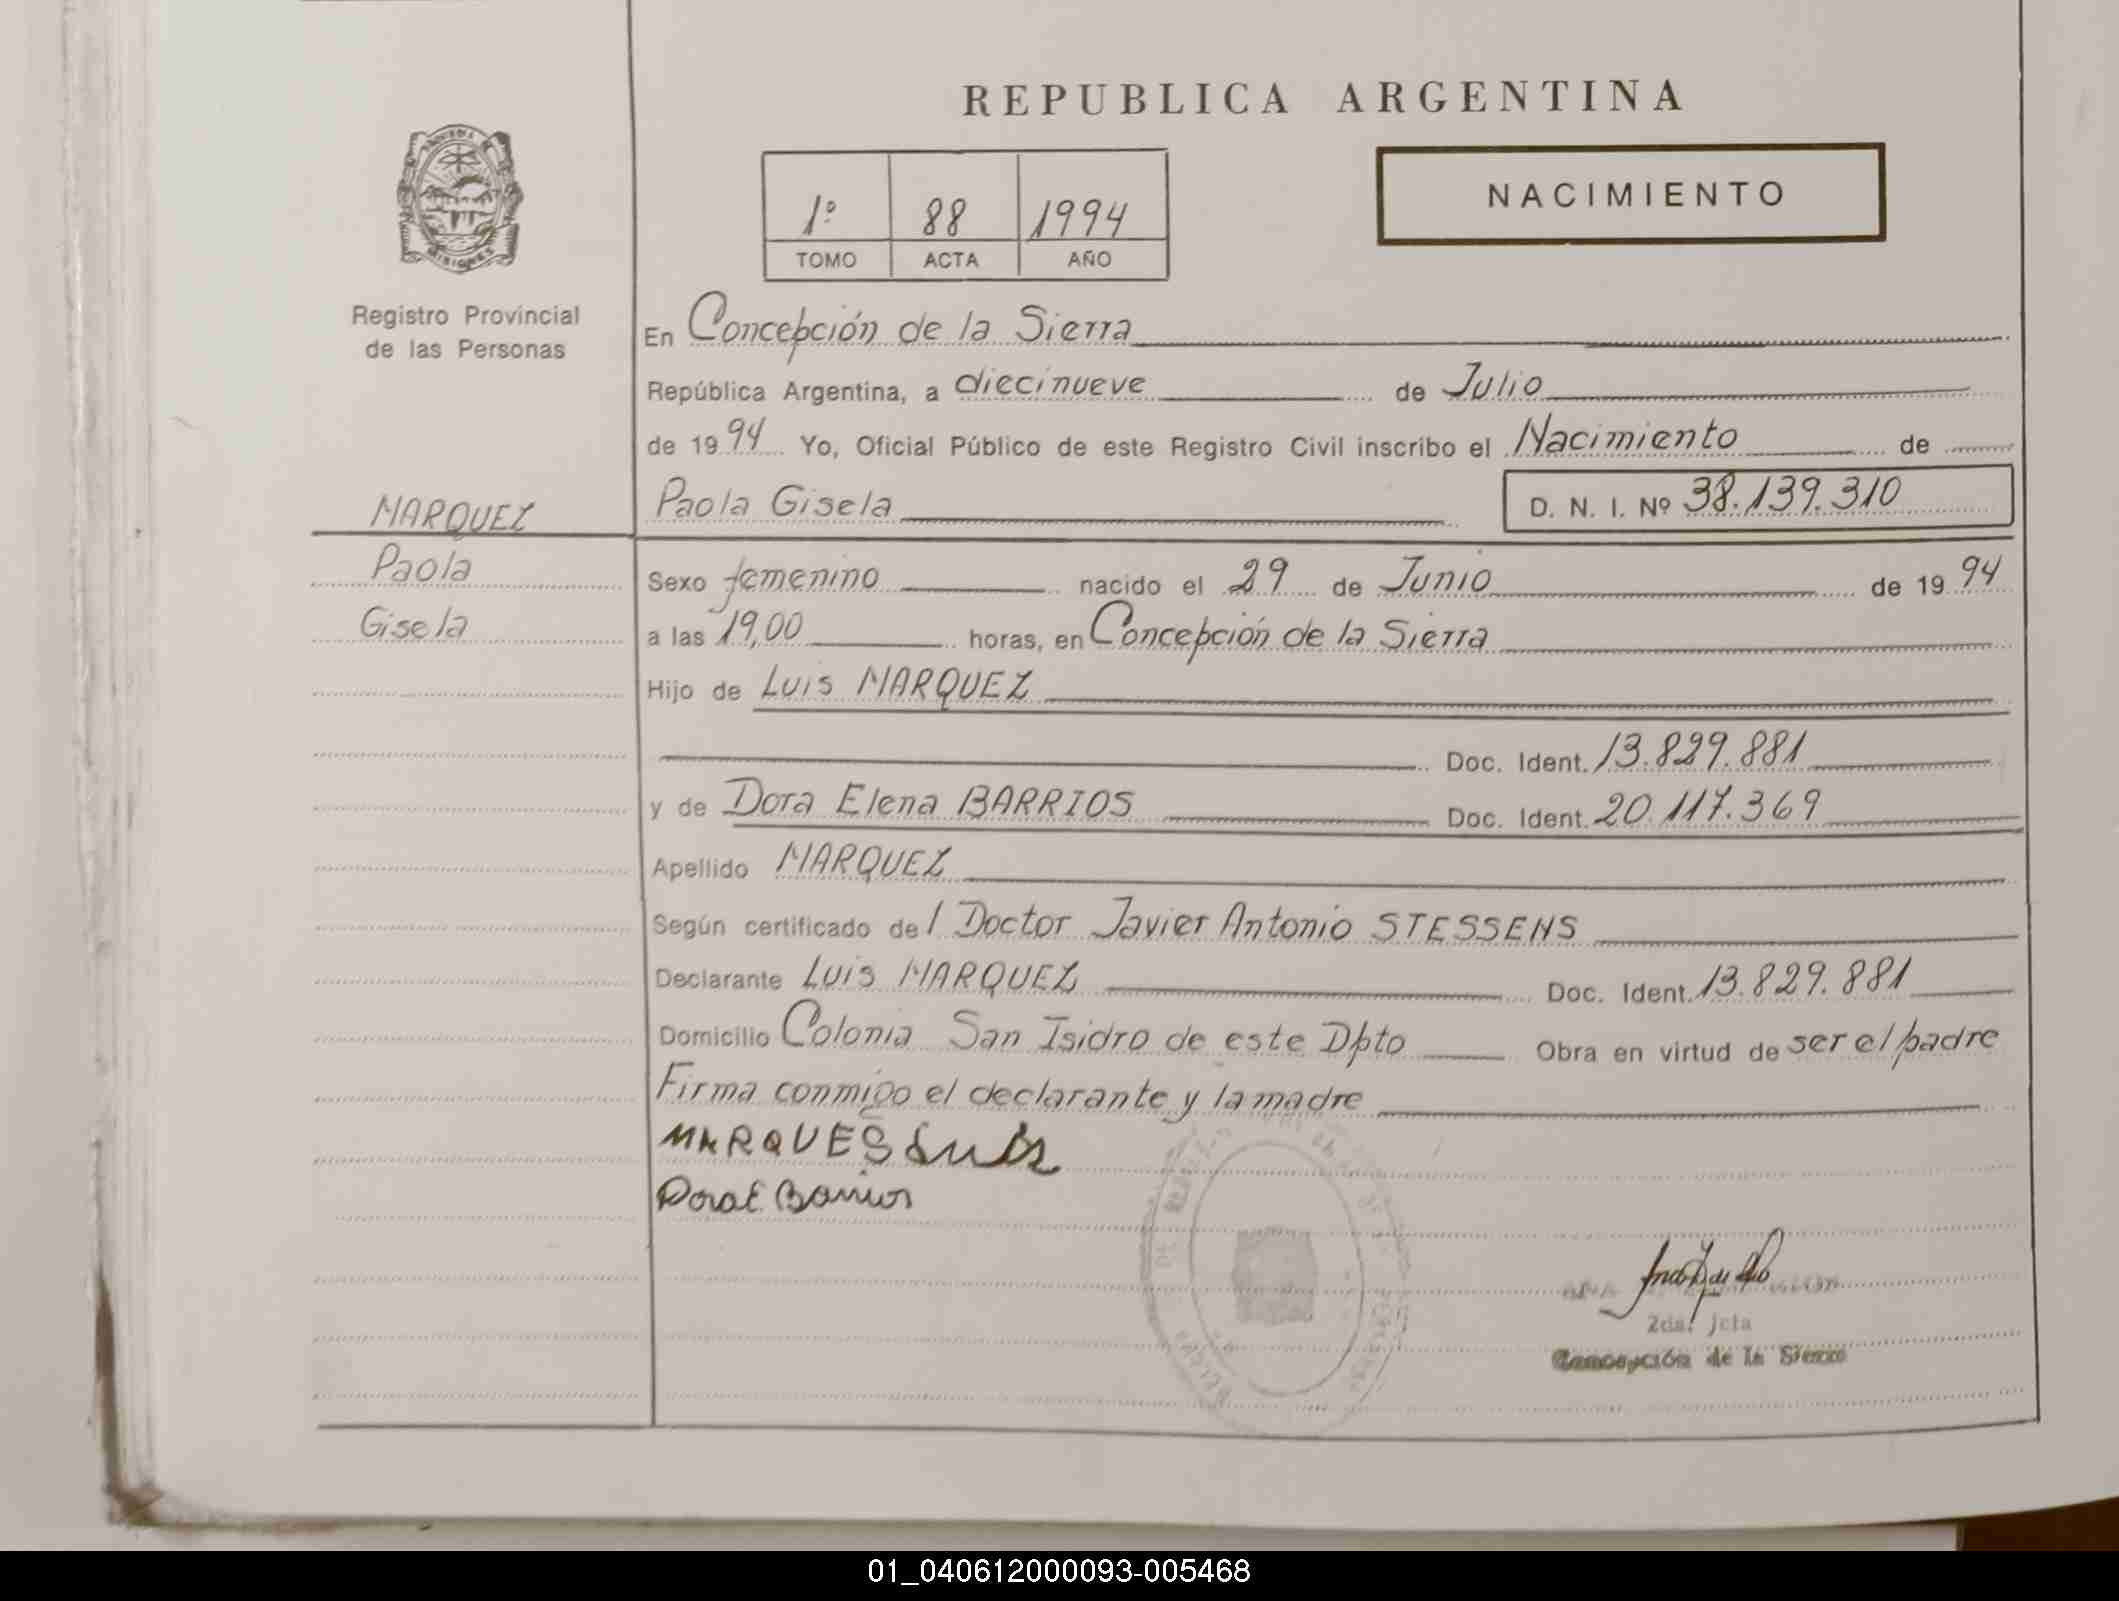 REPUBLICA ARGENTINA
1º 88 1994
TOMO ACTA AÑO
NACIMIENTO
MISIONES
Registro Provincial
de las Personas
En Concepción de la Sierra
República Argentina, a diecinueve de Julio
de 1994 Yo, Oficial Público de este Registro Civil inscribo el Nacimiento de
MARQUEZ
Paola Gisela D. N. I. Nº 38.139.310
Paola
Sexo femenino nacido el 29 de Junio de 1994
Gisela
a las 19,00 horas, en Concepción de la Sierra
Hijo de Luis MARQUEZ
Doc. Ident. 13.829.881
y de Dora Elena BARRIOS Doc. Ident. 20.117.369
Apellido MARQUEZ
Según certificado del Doctor Javier Antonio STESSENS
Declarante Luis MARQUEZ Doc. Ident. 13.829.881
Domicilio Colonia San Isidro de este Dpto Obra en virtud de ser el padre
Firma conmigo el declarante y la madre
MARQUES Luis
Dora E. Barrios
ANA
2da. Jefa
Concepción de la Sierra
01_040612000093-005468